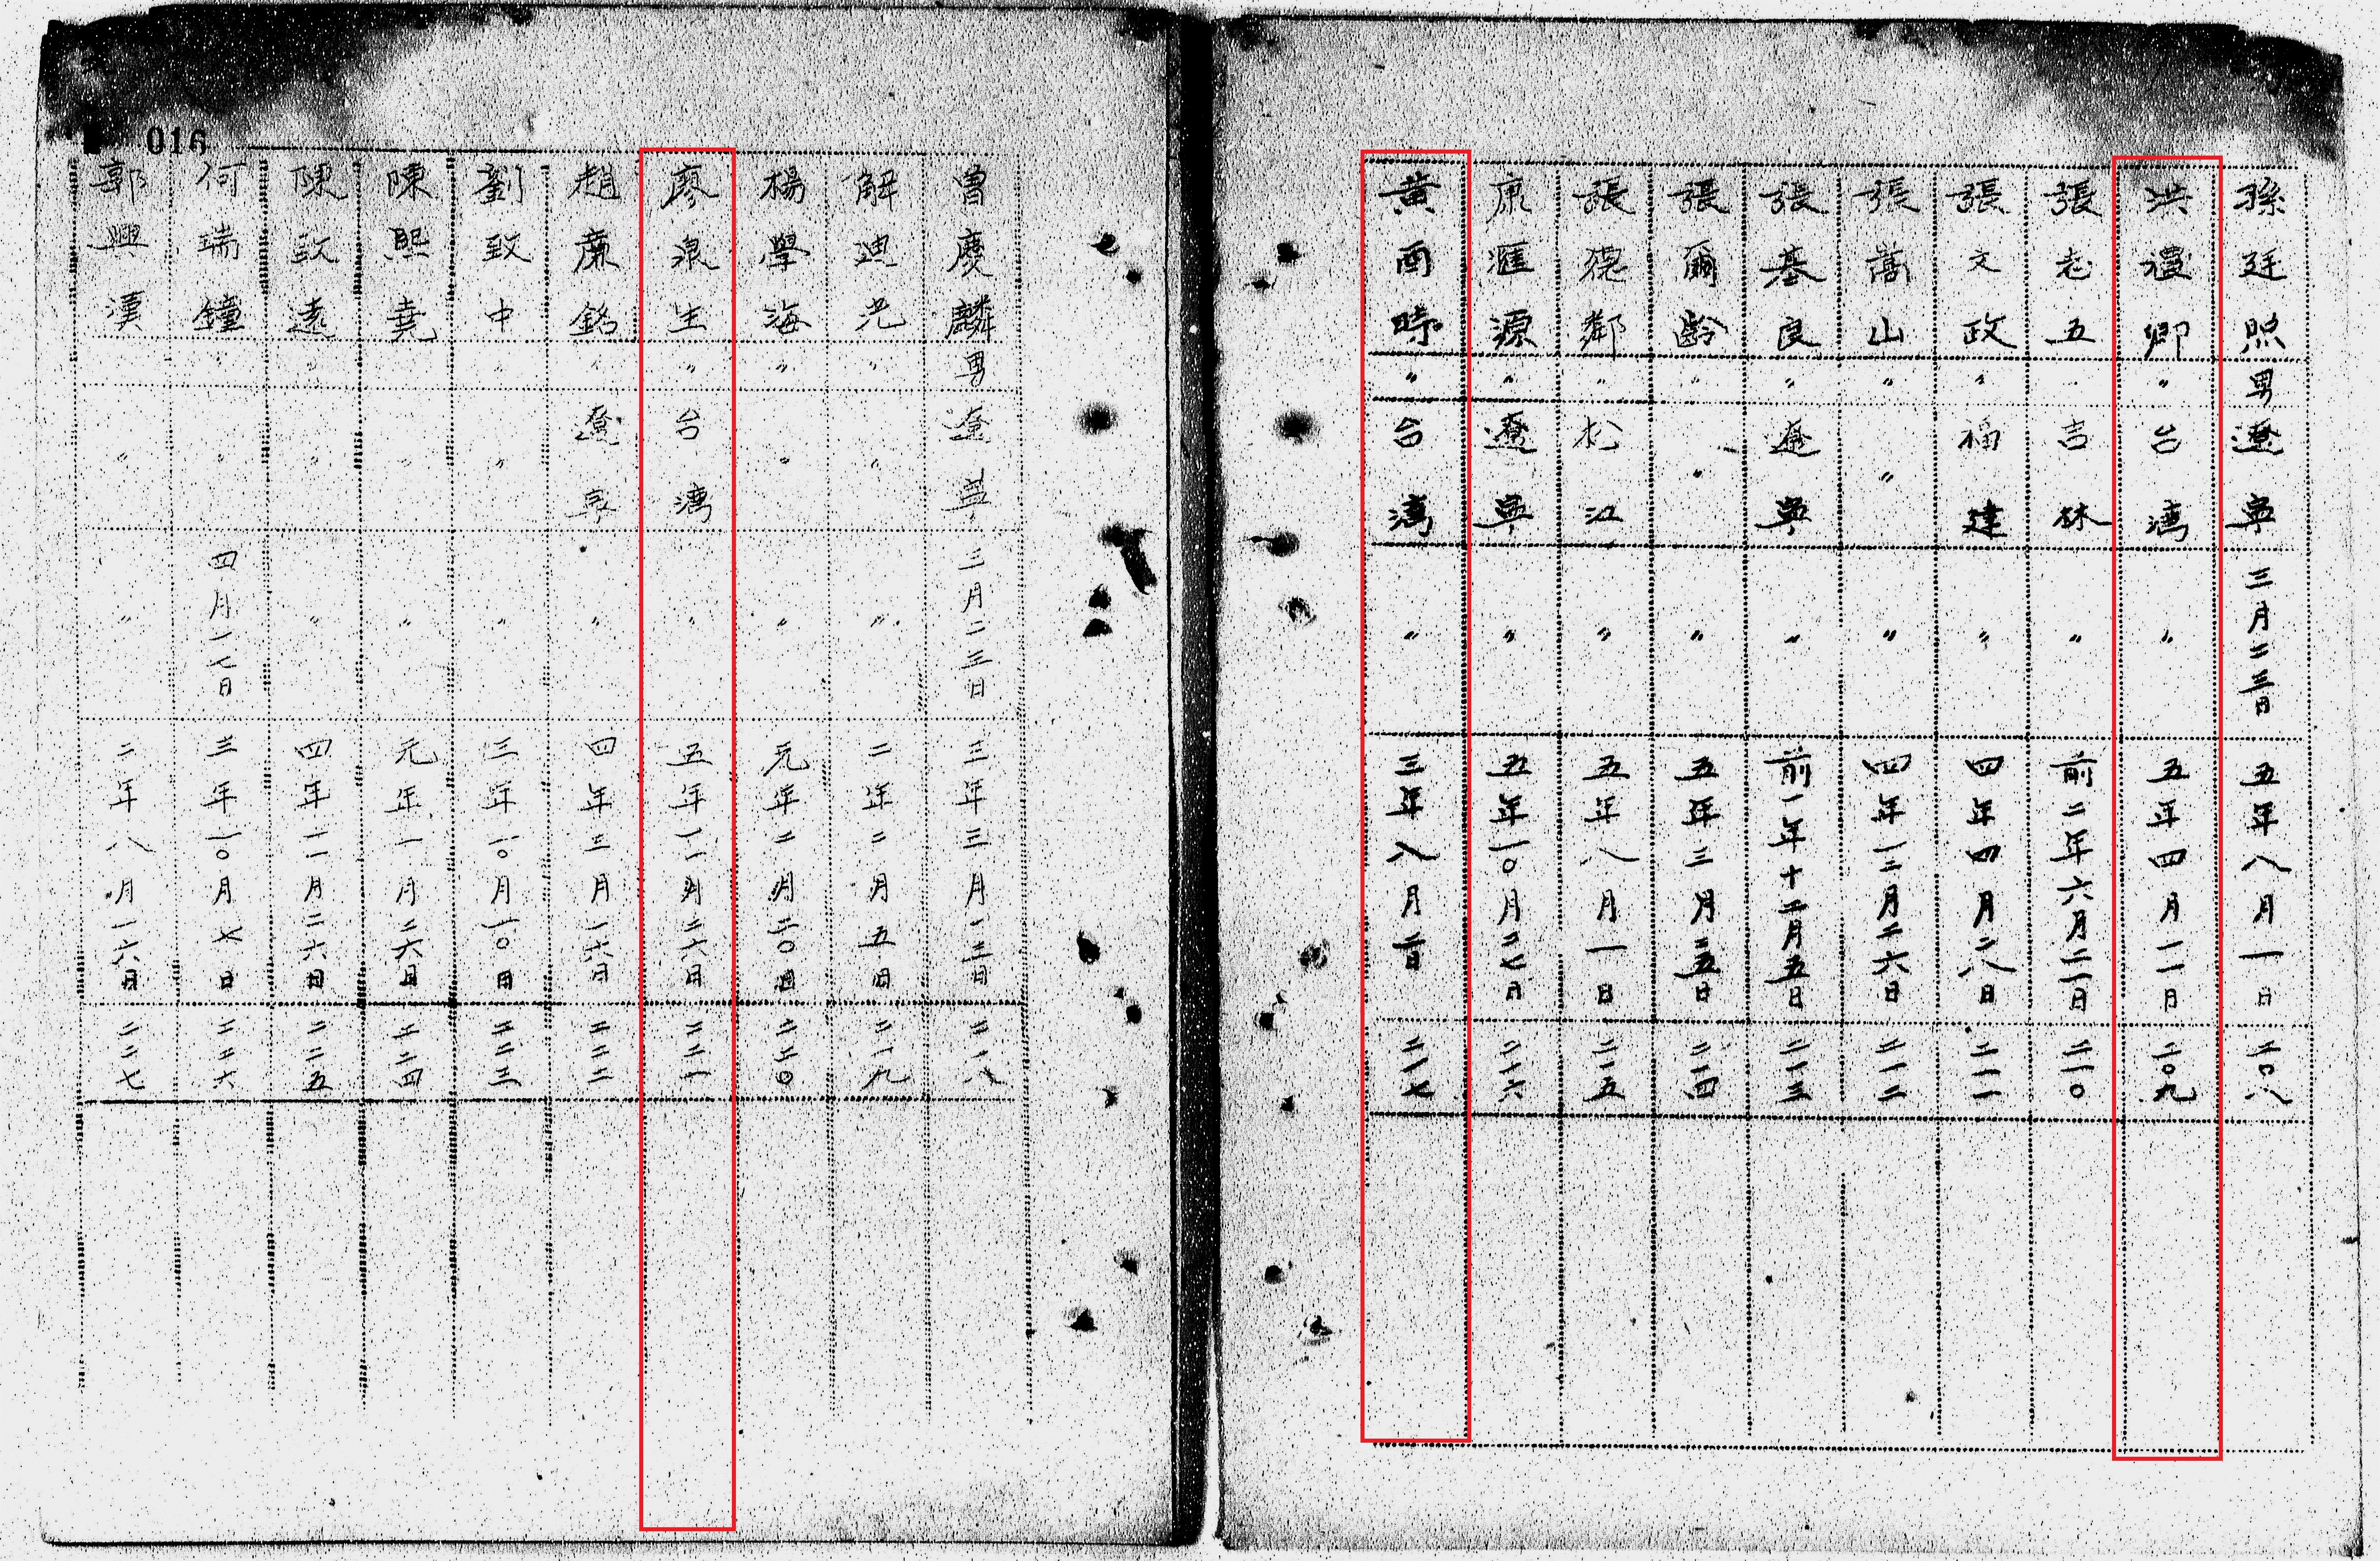 孫廷照 男 遼寧 三月二三日 五年八月一日 二〇八
洪禮卿 〃 台灣 〃 五年四月一一日 二〇九
張志五 〃 吉林 〃 前二年六月二一日 二一〇
張文政 〃 福建 〃 四年四月二八日 二一一
張嵩山 〃 〃 〃 四年一二月二六日 二一二
張基良 〃 遼寧 〃 前一年十二月五日 二一三
張爾齡 〃 〃 〃 五年三月二五日 二一四
張德鄰 〃 松江 〃 五年八月一日 二一五
康滙源 〃 遼寧 〃 五年一〇月二七日 二一六
黃酉時 〃 台灣 〃 三年八月 二一七
016
曾慶麟 男 遼寧 三月二三日 三年三月一三日 二一八
解迪光 〃 〃 〃 二年二月五日 二一九
楊學海 〃 〃 〃 元年二月二〇日 二二〇
廖泉生 〃 台灣 〃 五年一一月二六日 二二一
趙廉銘 〃 遼寧 〃 四年三月一六日 二二二
劉致中 〃 〃 〃 三年一〇月一〇日 二二三
陳熙堯 〃 〃 〃 元年一月二六日 二二四
陳致遠 〃 〃 〃 四年一一月二六日 二二五
何瑞鐘 〃 〃 四月一七日 三年一〇月七日 二二六
郭興漢 〃 〃 〃 二年八月一六日 二二七